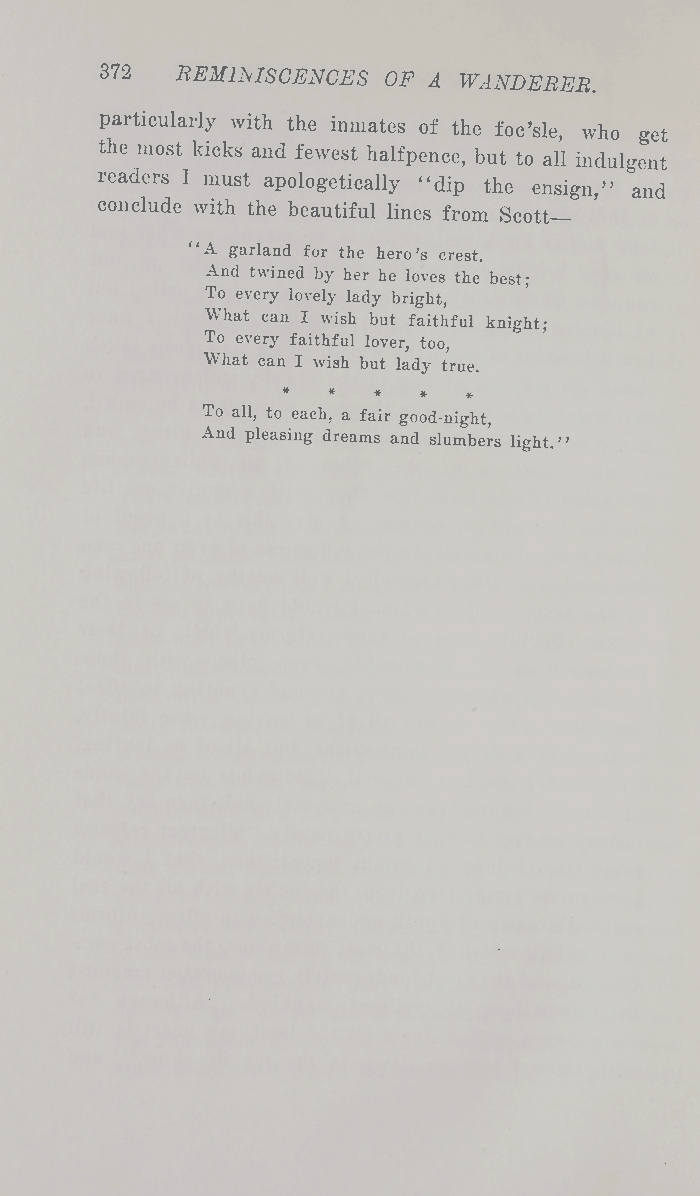 372 REMINISCENCES OF A WANDERER.
particularly with the inmates of the foc'sle, who get
the most kicks and fewest halfpence, but to all indulgent
readers I must apologetically "dip the ensign," and
conclude with the beautiful lines from Scott—
"A garland for the hero's crest.
And twined by her he loves the best;
To every lovely lady bright,
What can I wish but faithful knight;
To every faithful lover, too,
What can I wish but lady true.
* * * * *
To all, to each, a fair good-night,
And pleasing dreams and slumbers light."